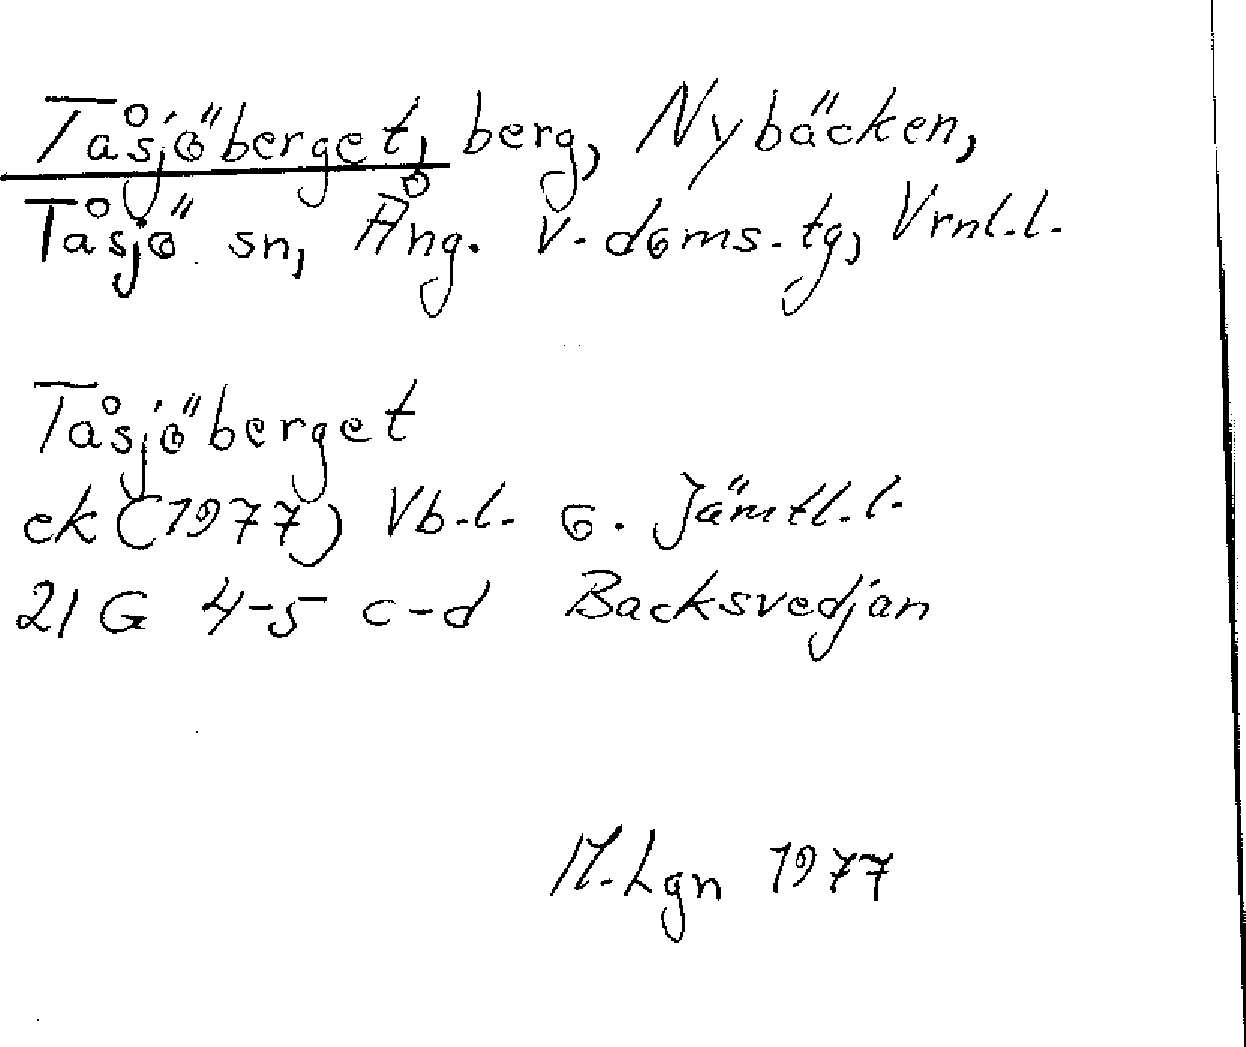 Tåsjöberget, berg, Nybäcken,
Tåsjö sn, Ång. V. doms. tg, Vrnl.l.
Tåsjöberget
ek (1977) Vb.l. o. Jämtl.l.
21 G 4-5 c-d Backsvedjan
M. Lgn 1977